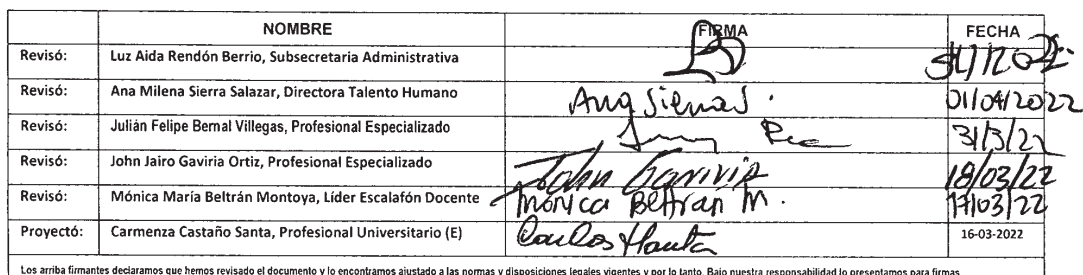 NOMBRE FIRMA FECHA
Revisó: Luz Aida Rendón Berrio, Subsecretaria Administrativa
Revisó: Ana Milena Sierra Salazar, Directora Talento Humano Ana Sierra S. 01/04/2022
Revisó: Julián Felipe Bernal Villegas, Profesional Especializado 31/3/22
Revisó: John Jairo Gaviria Ortiz, Profesional Especializado John Gaviria 18/03/22
Revisó: Mónica María Beltrán Montoya, Líder Escalafón Docente Mónica Beltrán M. 17/03/22
Proyectó: Carmenza Castaño Santa, Profesional Universitario (E) 16-03-2022
Los arriba firmantes declaramos que hemos revisado el documento y lo encontramos ajustado a las normas y disposiciones legales vigentes y por lo tanto. Bajo nuestra responsabilidad lo presentamos para firmas